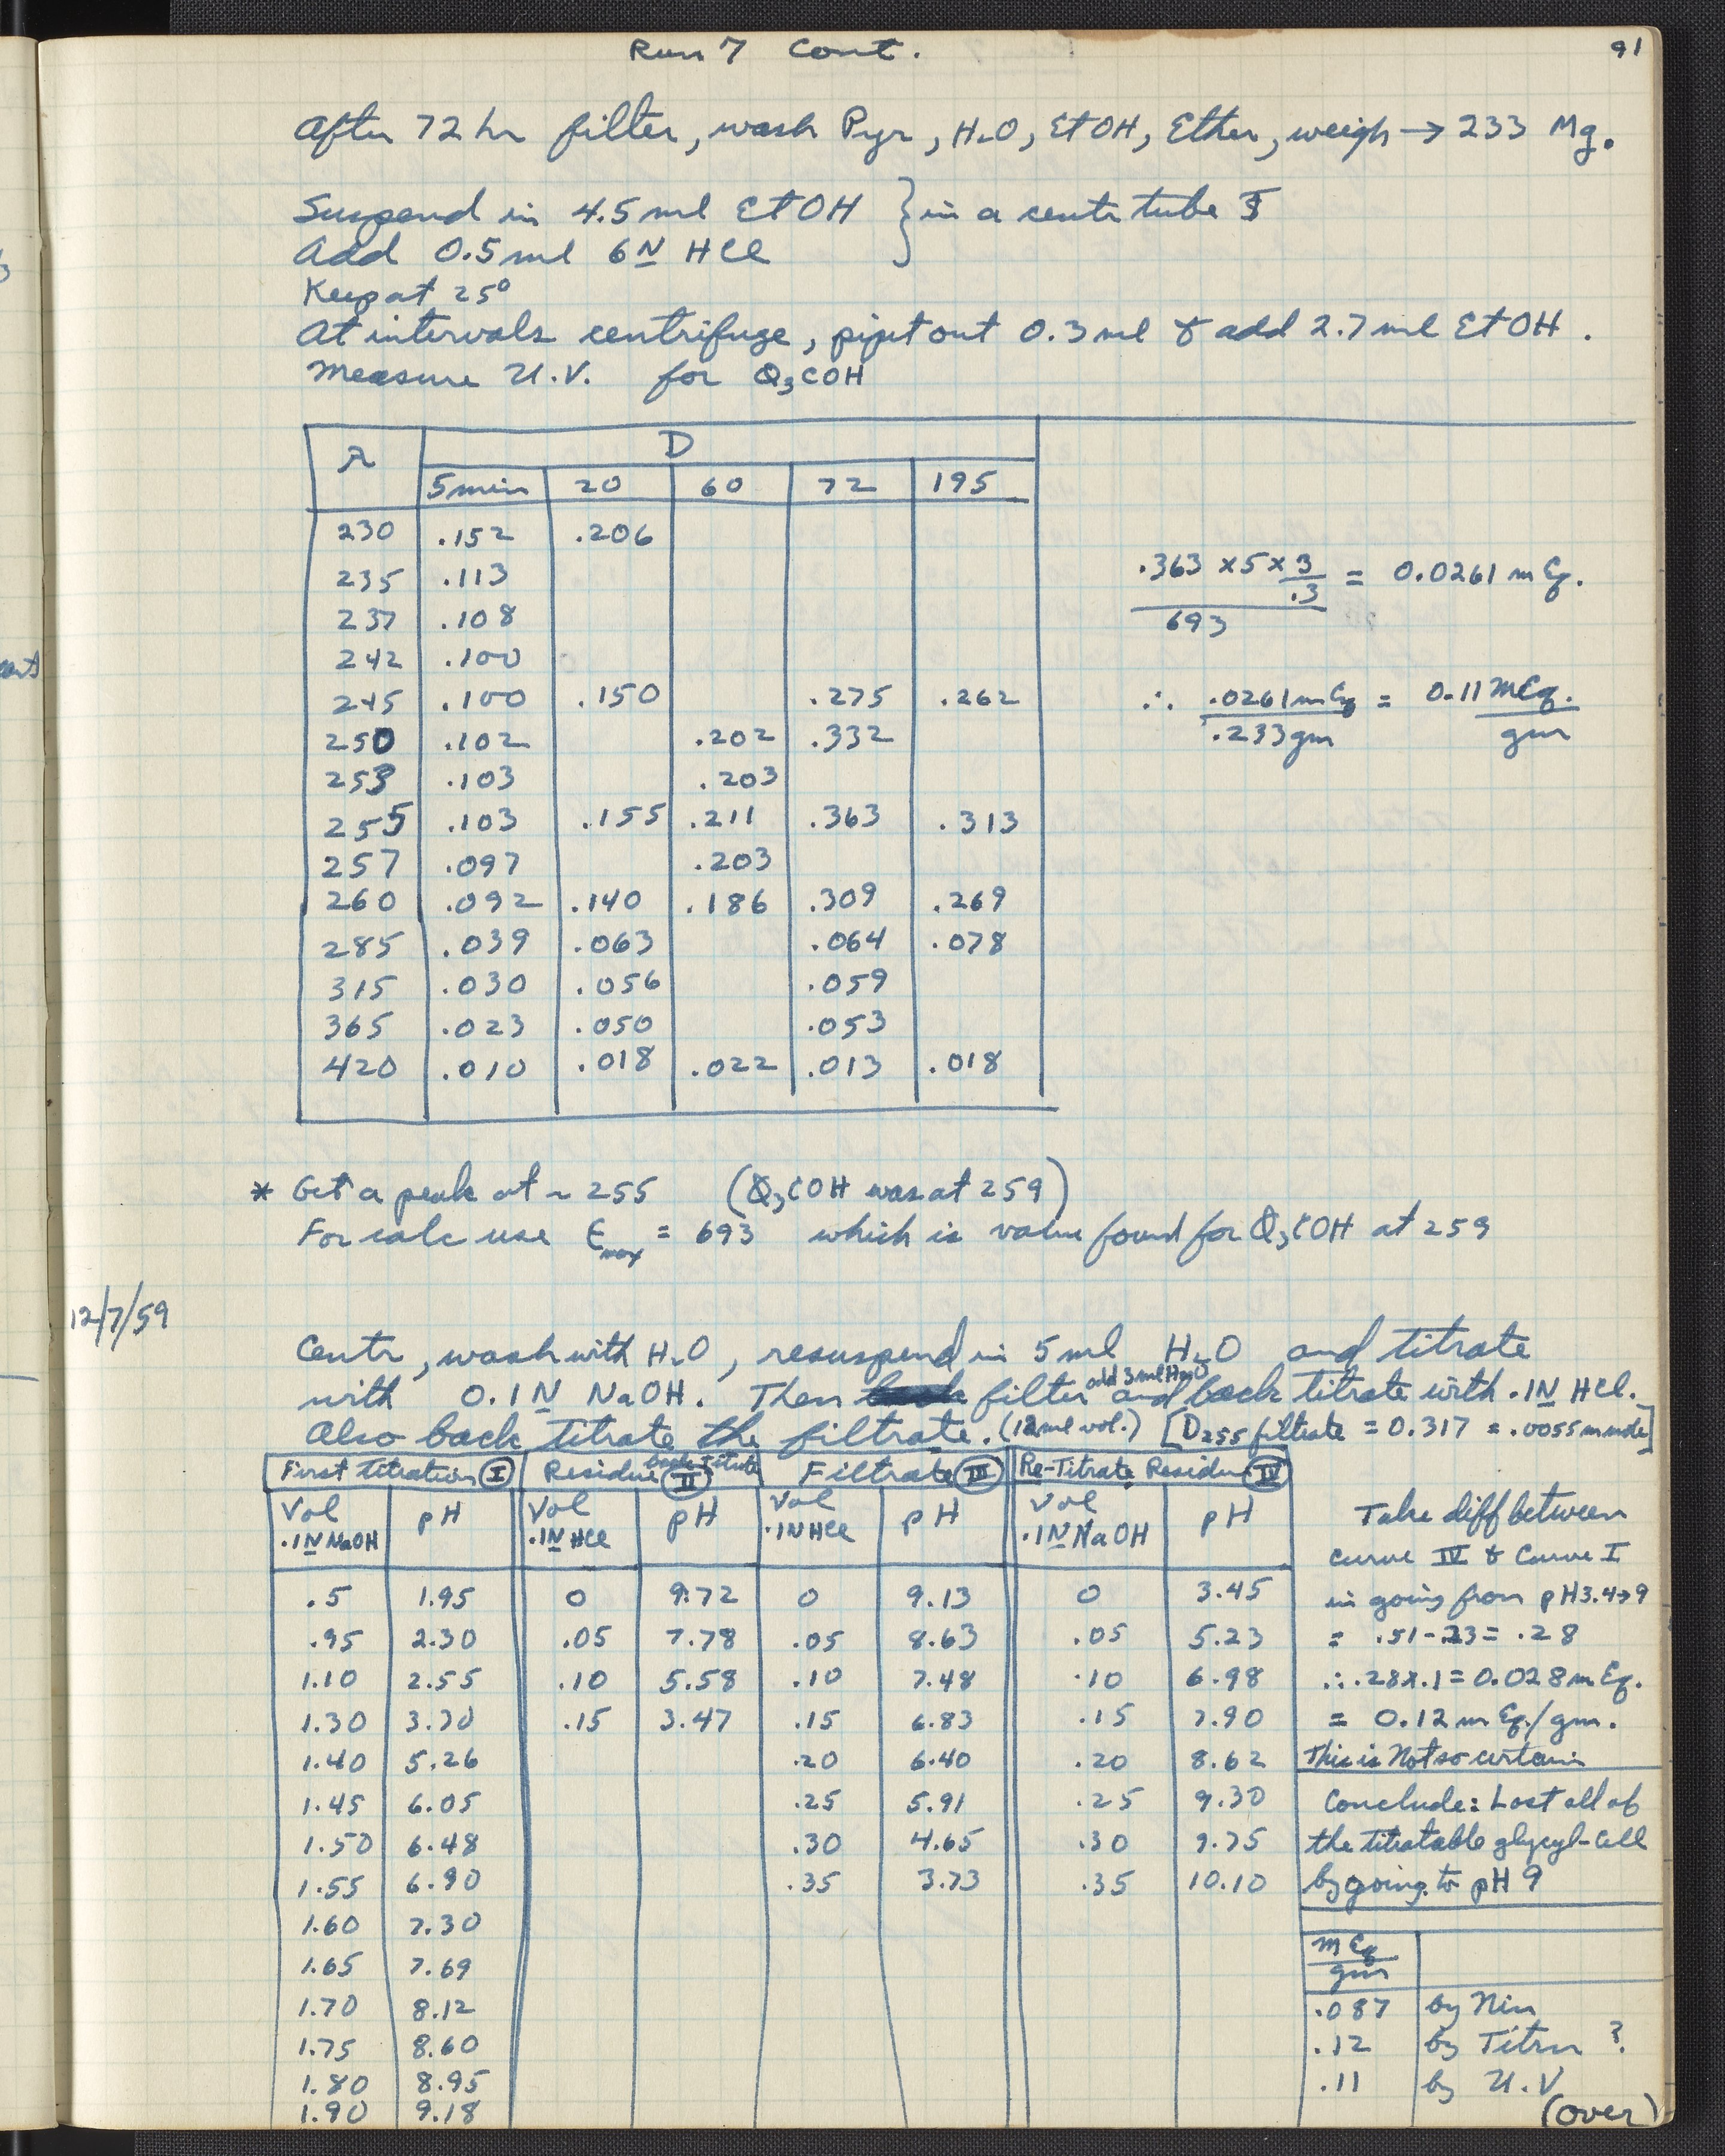 Run 7 Cont.
91
After 72 hr filter, wash Pyr, H2O, EtOH, Ether, weigh → 233 Mg.
Suspend in 4.5 ml EtOH } in a centr tube
Add 0.5 ml 6N HCl
Keep at 25°
At intervals centrifuge, pipet out 0.3 ml & add 2.7 ml EtOH.
Measure U.V. for Φ3COH
λ D
5 min 20 60 72 195
230 .152 .206
235 .113
237 .108
242 .100
245 .100 .150 .275 .262
250 .102 .202 .332
253 .103 .203
255 .103 .155 .211 .363 .313
257 .097 .203
260 .092 .140 .186 .309 .269
285 .039 .063 .064 .078
315 .030 .056 .059
365 .023 .050 .053
420 .010 .018 .022 .013 .018
.363 x 5 x 3/.3 = 0.0261 mEq.
693
∴ .0261 mEq = 0.11 mEq.
.233 gm gm
* Get a peak at ~ 255 (Φ3COH was at 259)
For calc use Emax = 693 which is value found for Φ3COH at 259
12/7/59
Centr, wash with H2O, resuspend in 5 ml H2O and titrate
with 0.1N NaOH. Then filter and back titrate with .1N HCl.
Also back titrate the filtrate. (12 ml vol.) [D255 filtrate = 0.317 = .0055 mmole]
First titration I Residue back titrate II Filtrate III Re-Titrate Residue IV
Vol .1N NaOH pH Vol .1N HCl pH Vol .1N HCl pH Vol .1N NaOH pH
.5 1.95 0 9.72 0 9.13 0 3.45
.95 2.30 .05 7.78 .05 8.63 .05 5.23
1.10 2.55 .10 5.58 .10 7.48 .10 6.98
1.30 3.70 .15 3.47 .15 6.83 .15 7.90
1.40 5.26 .20 6.40 .20 8.62
1.45 6.05 .25 5.91 .25 9.30
1.50 6.48 .30 4.65 .30 9.75
1.55 6.90 .35 3.73 .35 10.10
1.60 7.30
1.65 7.69
1.70 8.12
1.75 8.60
1.80 8.95
1.90 9.18
Take diff between
curve IV & Curve I
in going from pH 3.4→9
= .51-.23 = .28
∴ .28x.1 = 0.028 mEq.
= 0.12 mEq/gm.
This is Not so certain
Conclude: Lost all of
the titratable glycyl-cell
by going to pH 9
mEq
gm
.087 by Nin
.12 by Titrn ?
.11 by U.V
(over)